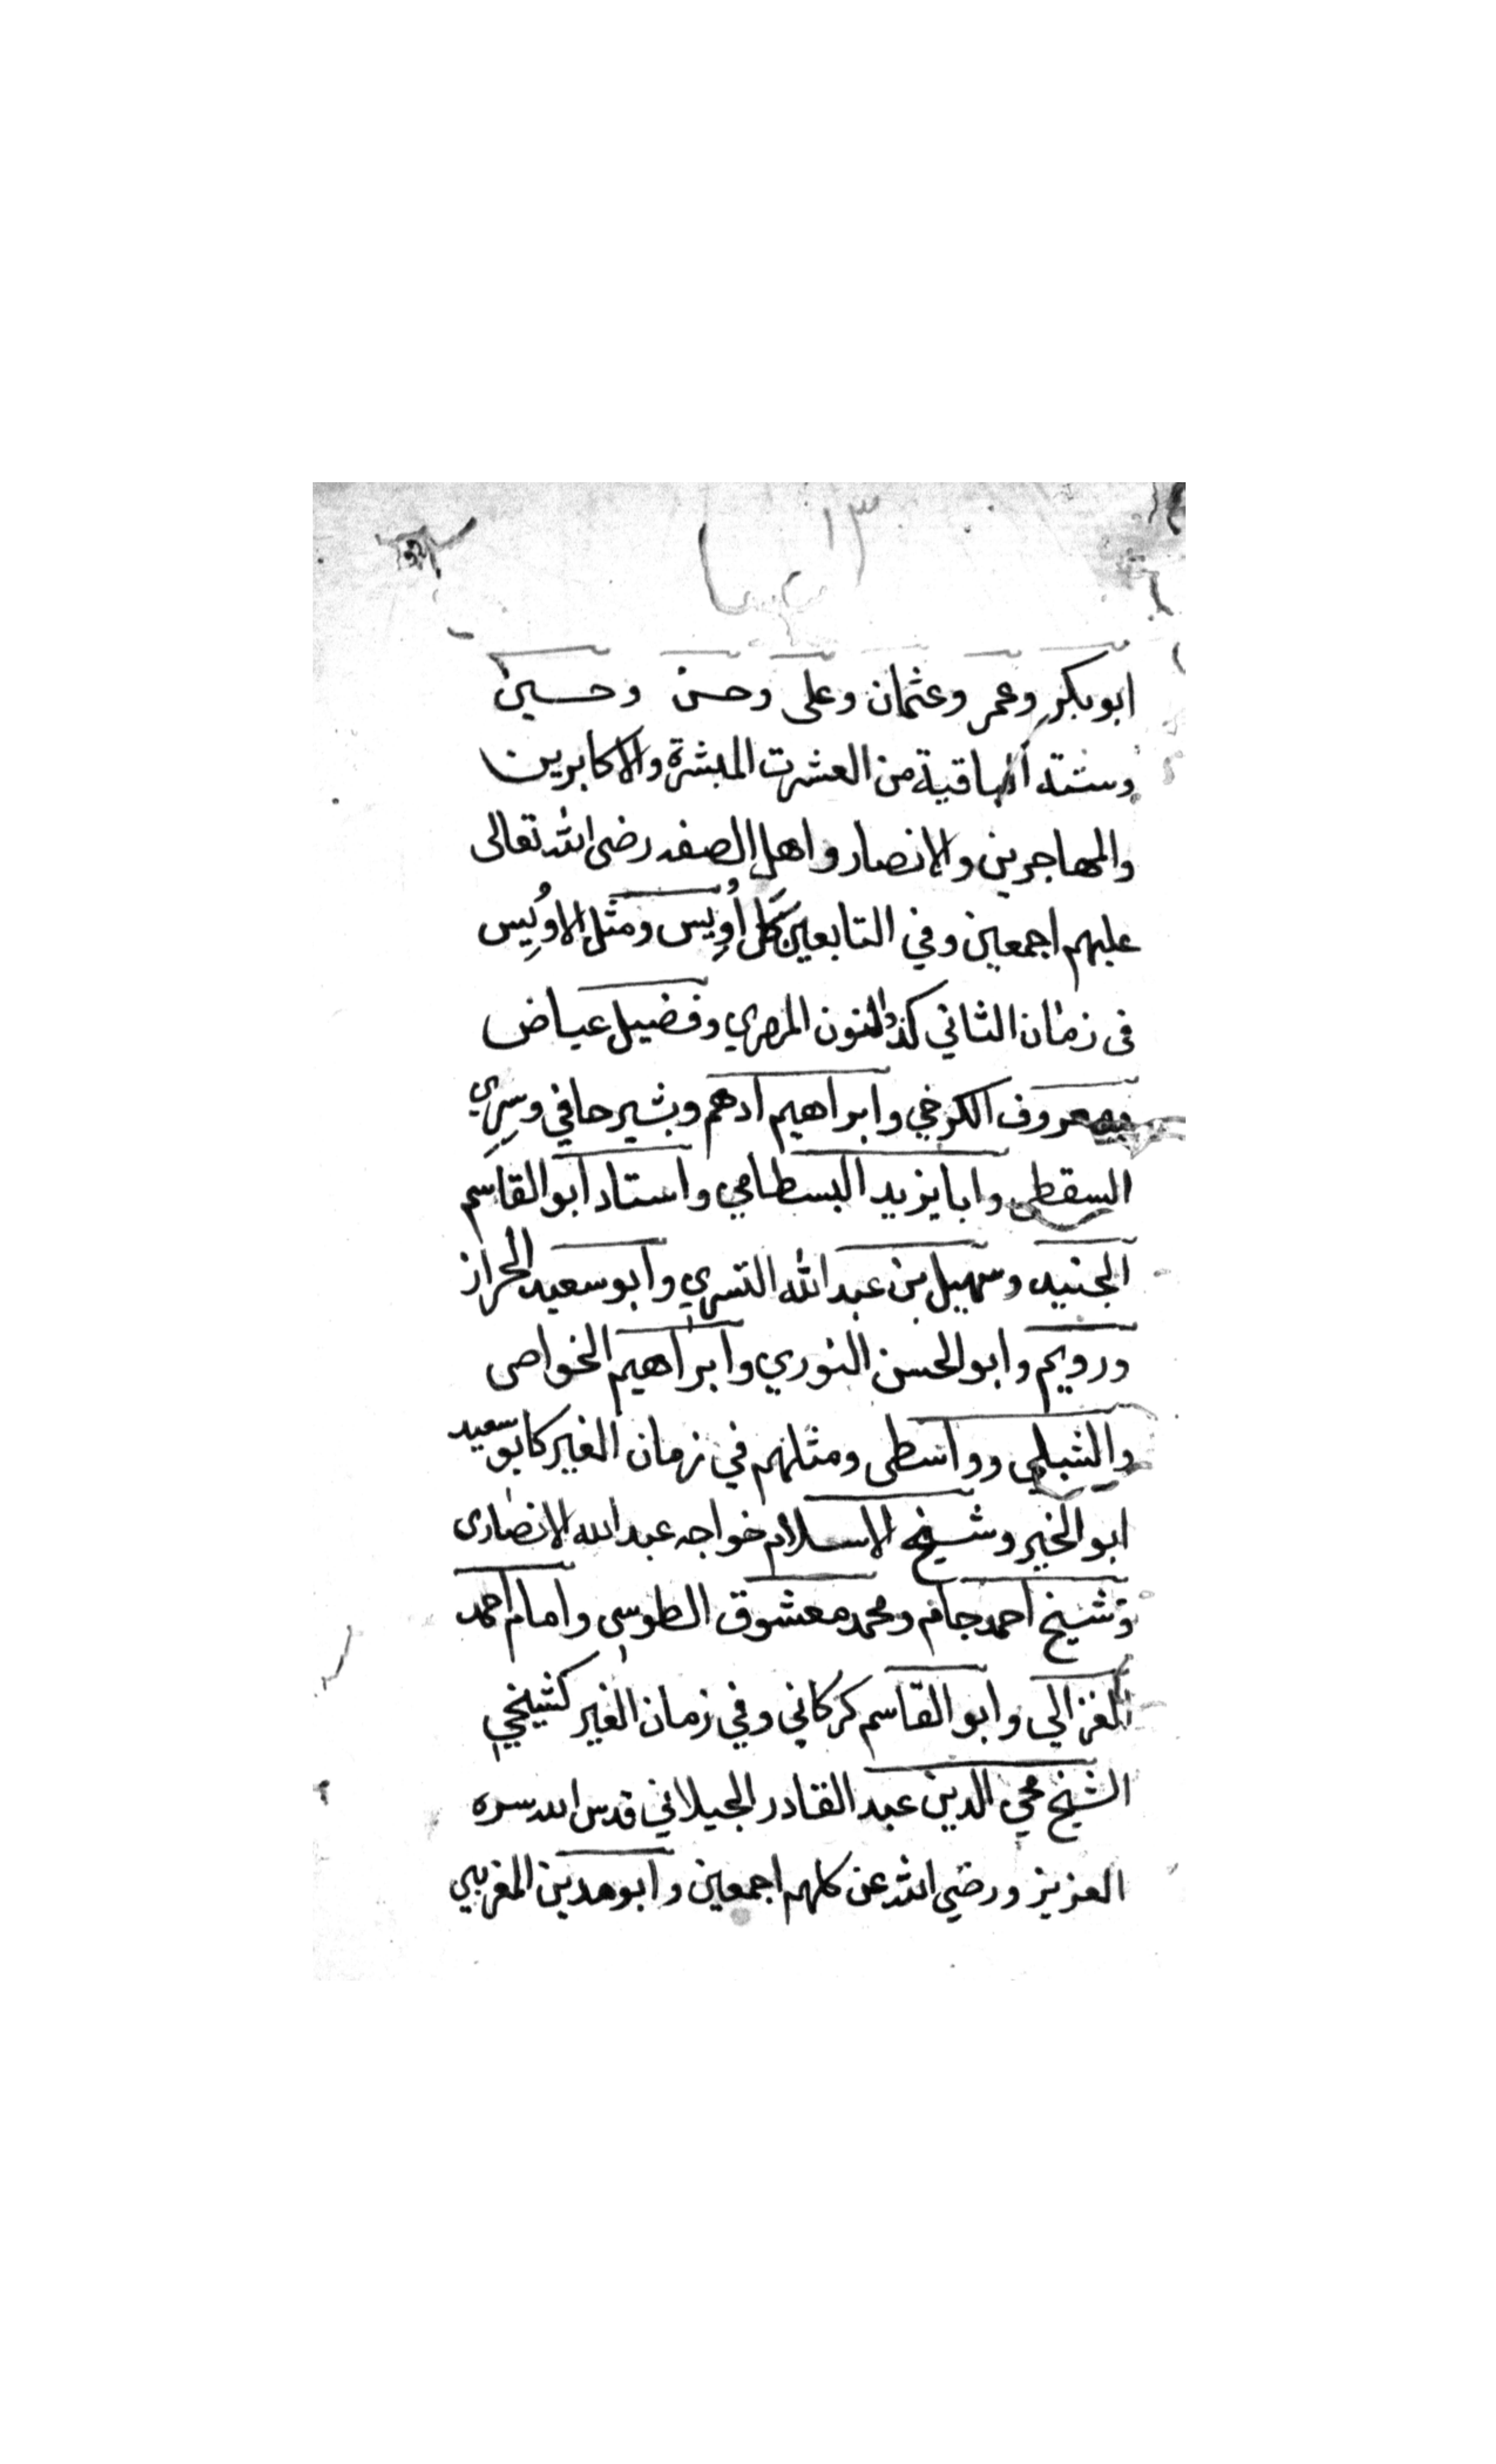 ابوبكر وعمر وعثمان وعلى وحسن وحسين
وستته الباقية من العشرت المبشرة والاكابرين
والمهاجرين والانصار واهل الصفه رضى الله تعالى
عليهم اجمعين وفي التابعين كل اُوِيس ومثل الاوُيِس
فى زمان الثاني كذالنون المصري وفضيل عياض
ومعروف الكرخي وابراهيم ادهم وبشير حافي وسِرِي
السقطى وابايزيد البسطامي واستاد ابوالقاسم
الجنيد وسهيل بن عبدالله التسري وابوسعيد الحراز
ورويم وابوالحسن النوري وابراهيم الخواص
والشبلي وواسطى ومثلهم في زمان الغير كابو سعيد
ابوالخير وشيخ الاسلام خواجه عبدالله الانصارى
وشيخ احمد جام ومحمد معشوق الطوسى وامام احمد
الغزالي وابوالقاسم كركاني وفي زمان الغير كشيخي
الشيخ محي الدين عبدالقادر الجيلاني قدس الله سره
العزيز ورضي الله عن كلهم اجمعين وابومدين المغربي